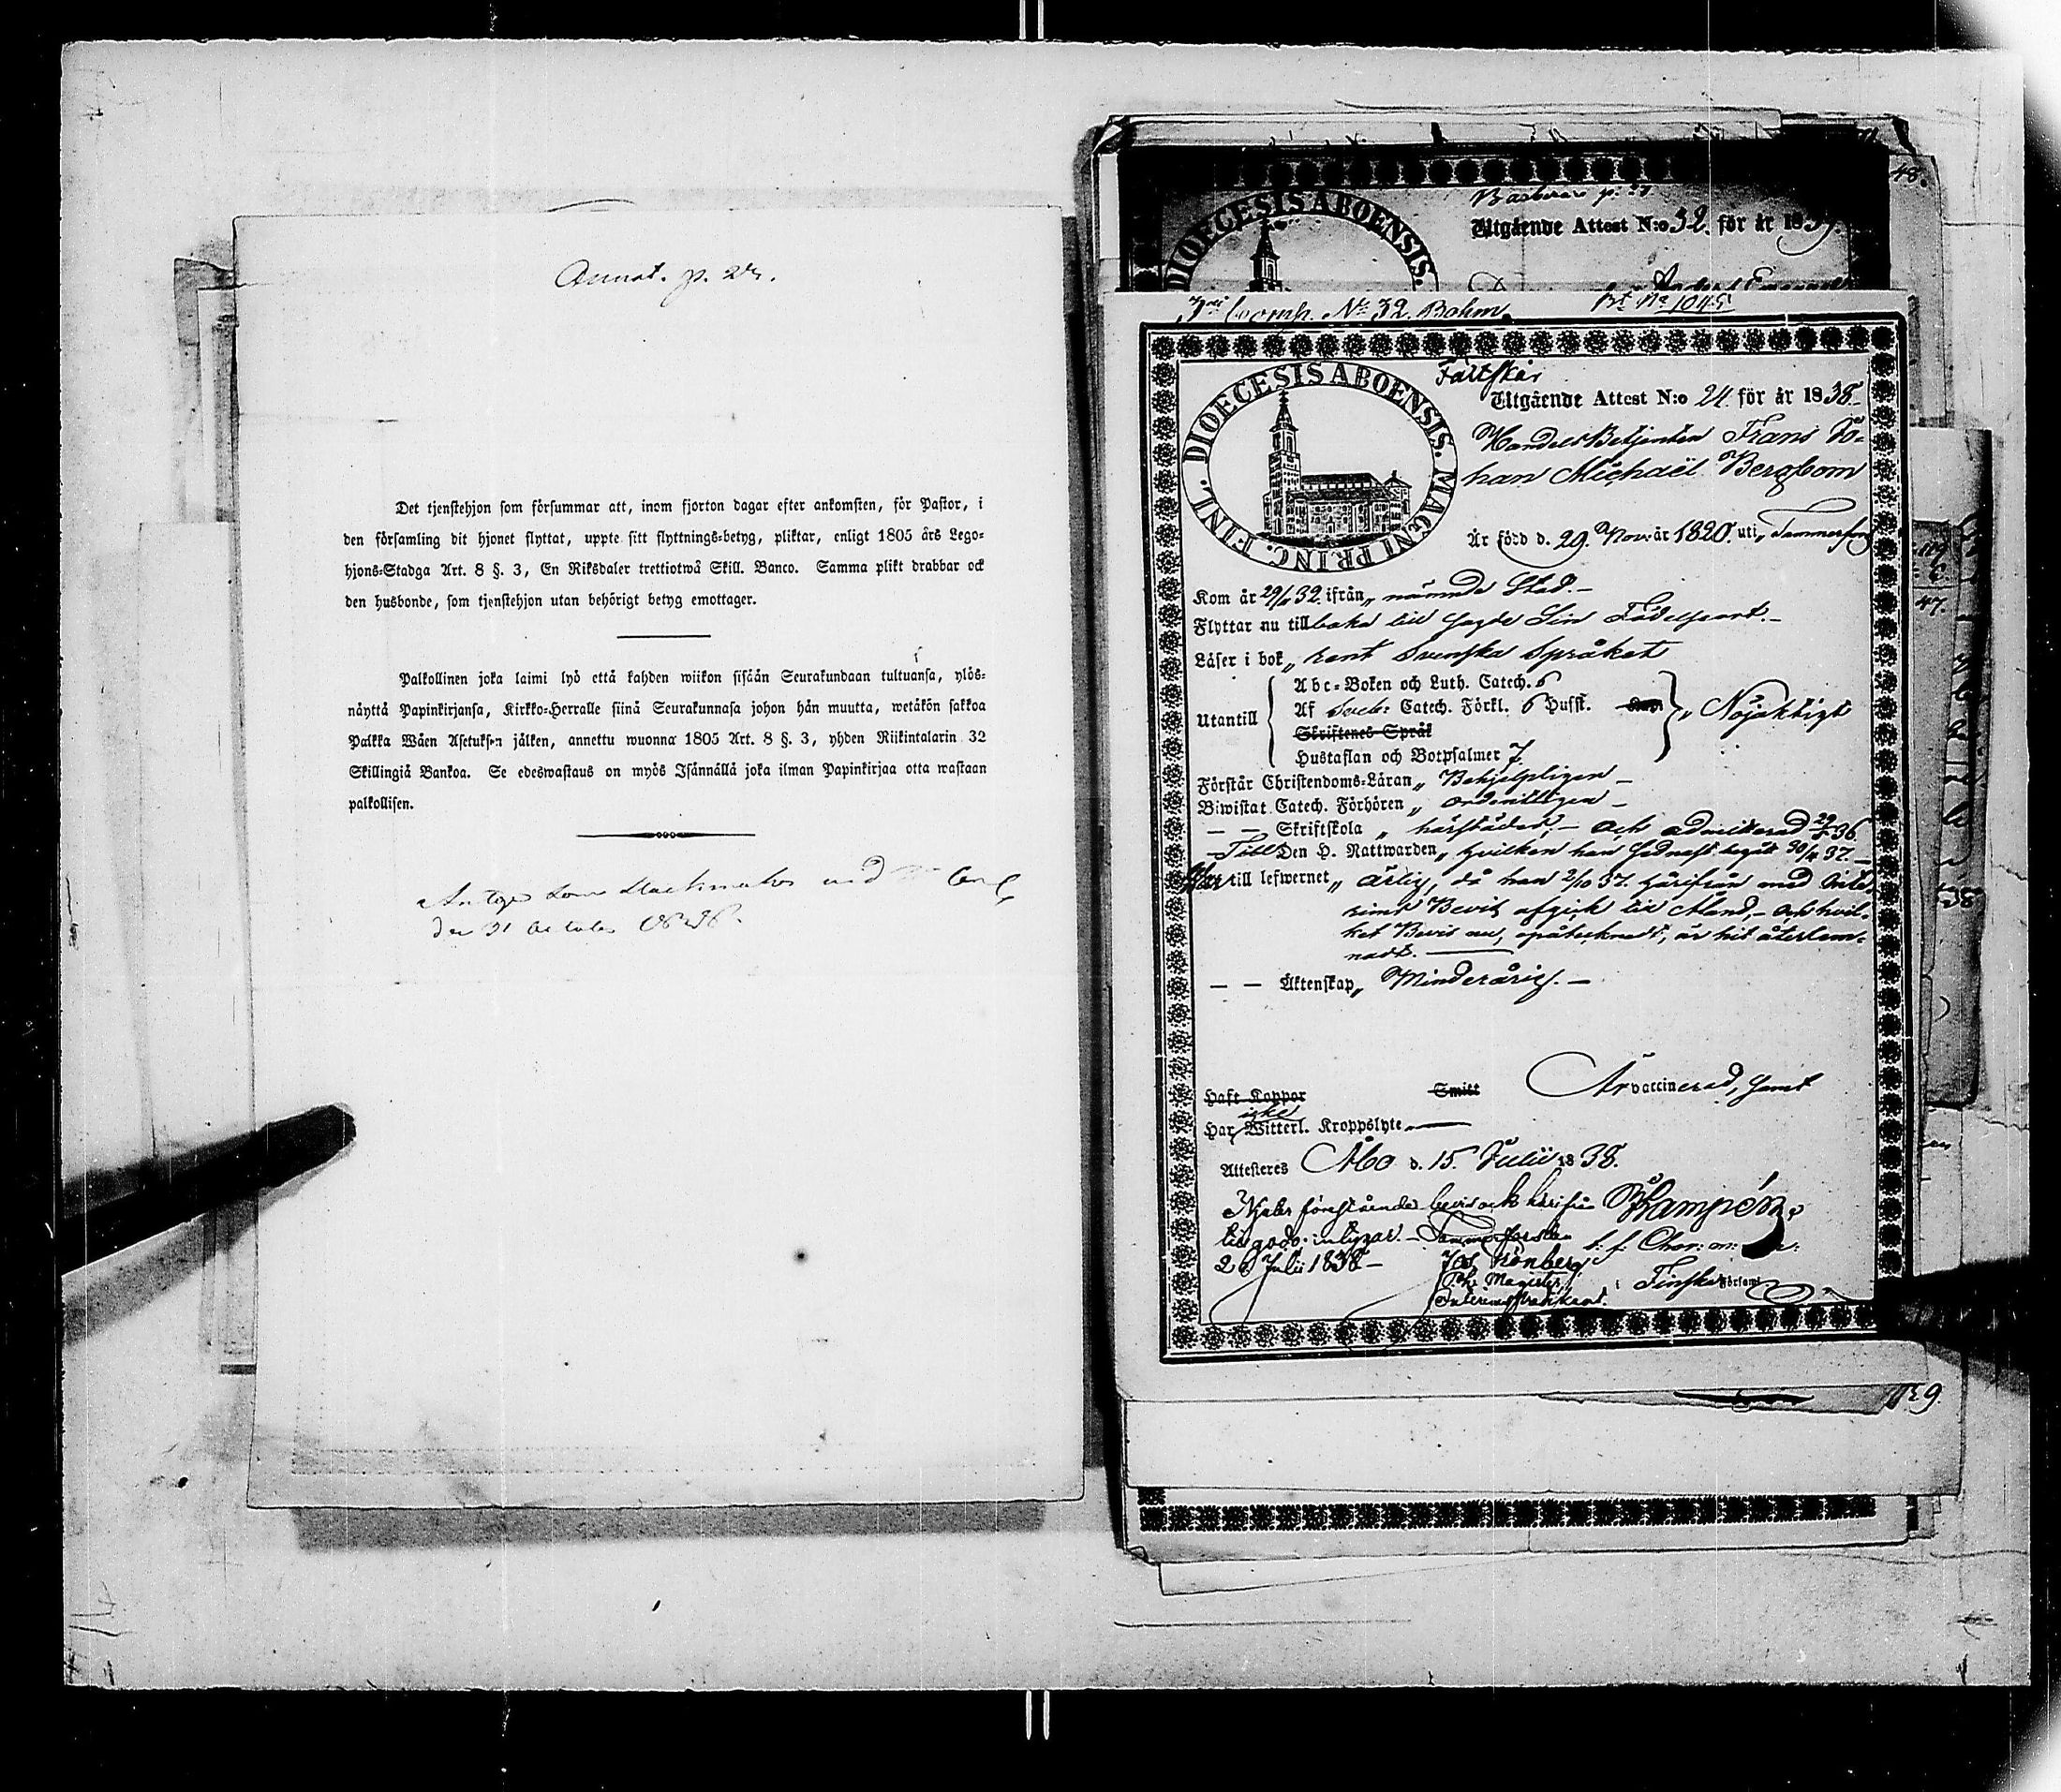 Annot. p. 24.
Det tjenstehjon som försummar att, inom fjorton dagar efter ankomsten, för Pastor, i
den församling dit hjonet flyttat, uppte sitt flyttnings-betyg, pliktar, enligt 1805 års Lego-
hjons-Stadga Art. 8 §. 3, En Riksdaler trettiotwå Skill. Banco. Samma plikt drabbar ock
den husbonde, som tjenstehjon utan behörigt betyg emottager.
Palkollinen joka laimi lyö että kahden wiikon sisään Seurakundaan tultuansa, ylös-
näyttä Papinkirjansa, Kirkko-Herralle siinä Seurakunnasa johon hän muutta, wetäkön sakkoa
Palkka Wäen Asetuksen jälken, annettu wuonna 1805 Art. 8 §. 3, yhden Riikintalarin 32
Skillingiä Bankoa. Se edeswastaus on myös Isännällä joka ilman Papinkirjaa otta wastaan
palkollisen.
Antogs som
den 31 October 1838.
48.
Utgående Attest N:o 32. för år 1839.
DIOECESIS ABOENSIS.
Comp. No 32. Bohm.
No 1045
Fältskär
DIOECESIS ABOENSIS. MAGNI PRINC. FINL.
Utgående Attest N:o 24 för år 1838
HandelsBetjenten Frans Jo-
han Michaël Bergbom
Är född d. 29. Nov: år 1820. uti Tammerfors
Kom år 29/ 32. ifrån nämnde Stad.
Flyttar nu tillbaka till sagde Sin Födelseort.
Läser i bok rent Svenska Språket
Abc-Boken och Luth. Catech. 6
Utantill Af Sveb: Catech. Förkl. 6 Husst. Kap. Nöjaktigt
Skriftenes Språk
Hustaflan och Botpsalmer 7.
Förstår Christendoms-Läran Behjelpligen
Biwistat Catech. Förhören ordentligen
Skriftskola härstädes, och admitterad 29/5 36
Till Den H. Nattwarden hvilken han sednast begått 30/4 37.
till lefwernet ärlig, då han 2/10 37. härifrån med Inte-
rims Bevis afgick till Åland, och hvil-
ket Bevis nu, opåtecknadt, är hit återläm-
nadt.
Äktenskap Minderårig.
Haft Koppor Smitt Är vaccinerad, samt
Har icke Witterl. Kroppslyte
Attesteres Åbo d. 15 Julii 1838.
Njuter förestående bevis ock härifrån
till godo, intygar. Tammerfors den
26 Julii 1838
Jos. Grönberg
Ph: Magister,
Finska Församl.
47.